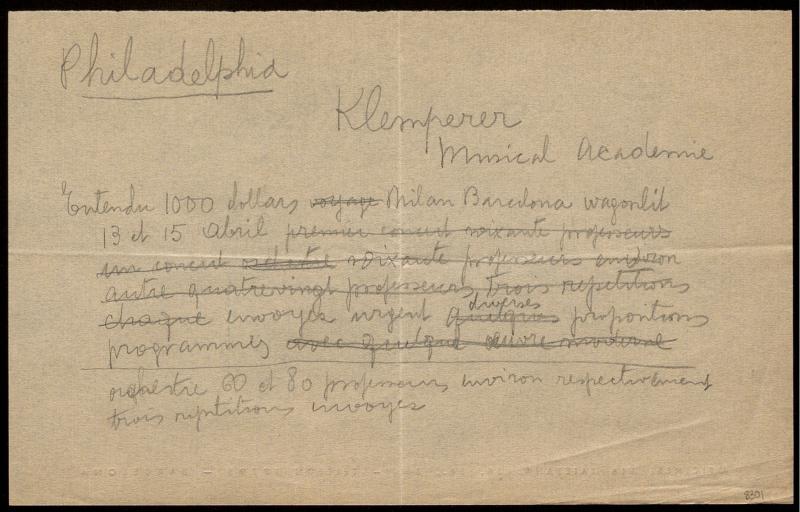 Philadelphia
Klemperer
Musical Academie
Entendu 1000 dollars voyage Milan Barcelona wagonlit
13 et 15 Abril premier concert soixante professeurs
un concert soixante professeurs environ
autre quatrevingt professeurs trois repetitions
chaque envoyez urgent quelques diverses propositions
programmes avec quelque œuvre moderne
orquestre 60 et 80 professeurs environ respectivement
trois reptitions envoyez
8301